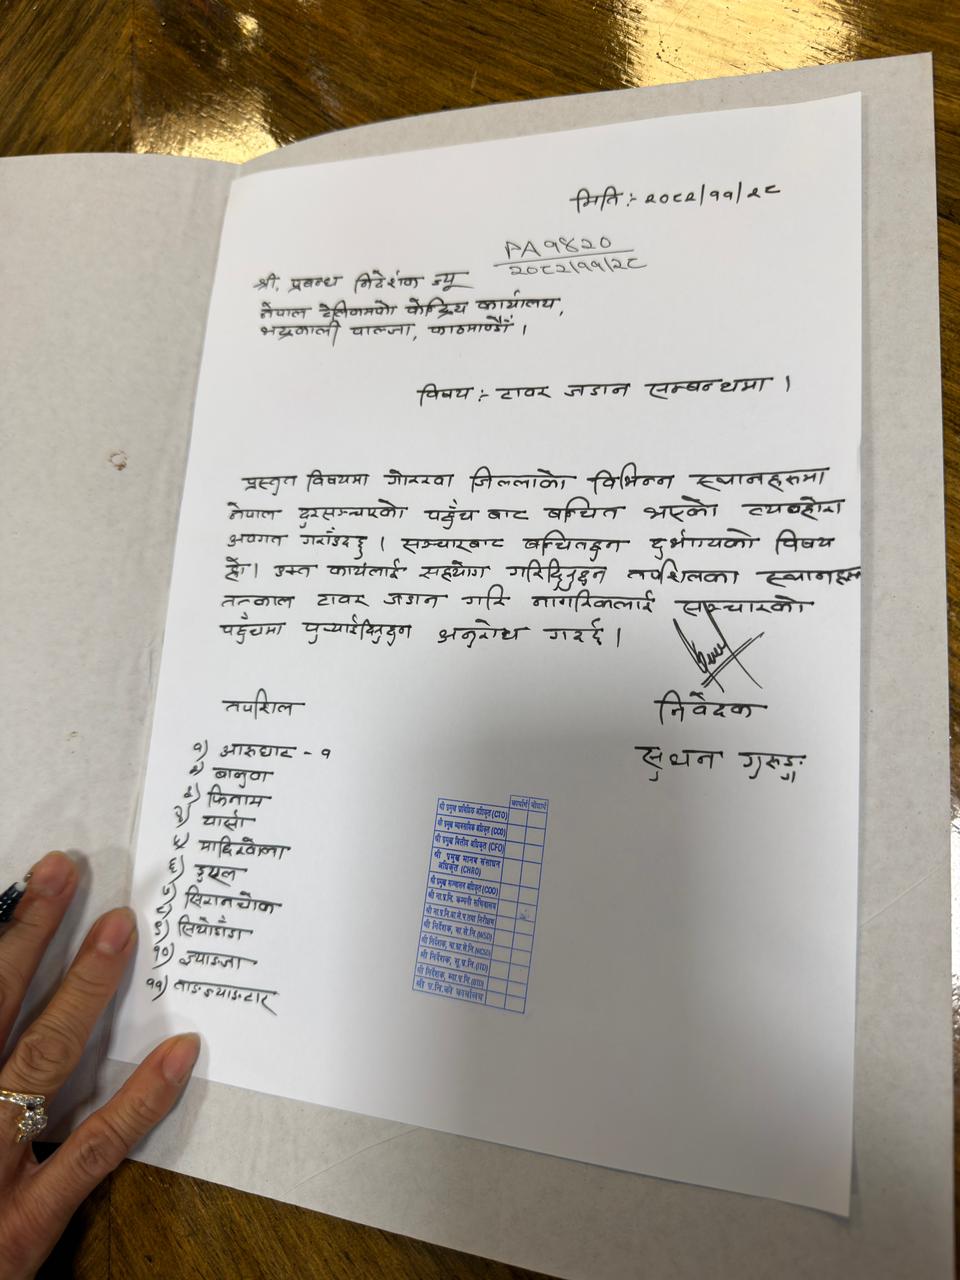 मिति :- २०८२/११/२८
PA 9420
२०८२/११/२८
श्री, प्रबन्ध निर्देशक ज्यू
नेपाल टेलिकमको केन्द्रिय कार्यालय,
भद्रकाली प्लाजा, काठमाण्डौँ ।
विषय :- टावर जडान सम्बन्धमा ।
प्रस्तुत विषयमा गोरखा जिल्लाको विभिन्न स्थानहरुमा
नेपाल दुरसञ्चारको पहुँच बाट बन्चित भएको व्यहोरा
अवगत गराँउदछु । सञ्चारबाट बन्चितहुन दुर्भाग्यको विषय
हो । उक्त कार्यलाई सहयोग गरिदिनुहुन तपशिलका स्थानहरु
तत्काल टावर जडान गरि नागरिकलाई सञ्चारको
पहुँचमा पुर्‍याईदिनुहुन अनुरोध गर्दछु ।
तपशिल
निवेदक
सुधन गुरुङ्ग
१) आरुघाट - १
बाकुण्ड
फिनाम
३) यार्सा
माझिखोला
६) डुम्रे
सिरानचोक
९) लियोडाँडा
१०) ज्याङ्जा
११) ताङङ्याङटार
कार्यार्थ बोधार्थ
श्री प्रमुख प्राविधिक अधिकृत (CTO)
श्री प्रमुख व्यावसायिक अधिकृत (CCO)
श्री प्रमुख वित्तीय अधिकृत (CFO)
श्री प्रमुख मानव संसाधन
अधिकृत (CHRO)
श्री प्रमुख सञ्चालन अधिकृत (COO)
श्री ना.प्र.नि. कम्पनी सचिवालय
श्री निर्देशक, (MSD)
श्री निर्देशक, (WCSD)
श्री निर्देशक, सू.प्र.नि. (ITD)
श्री निर्देशक, व्या.प.नि.
श्री प्र.नि.को कार्यालय